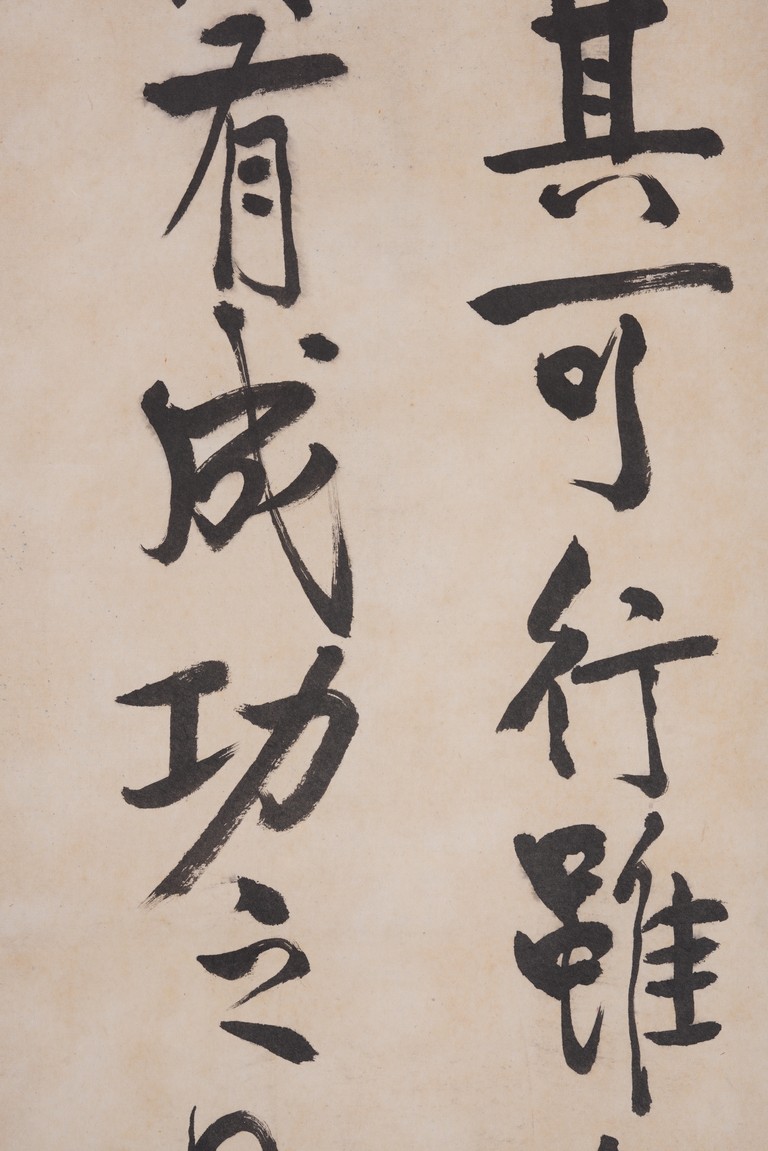 其可行雖
有成功之